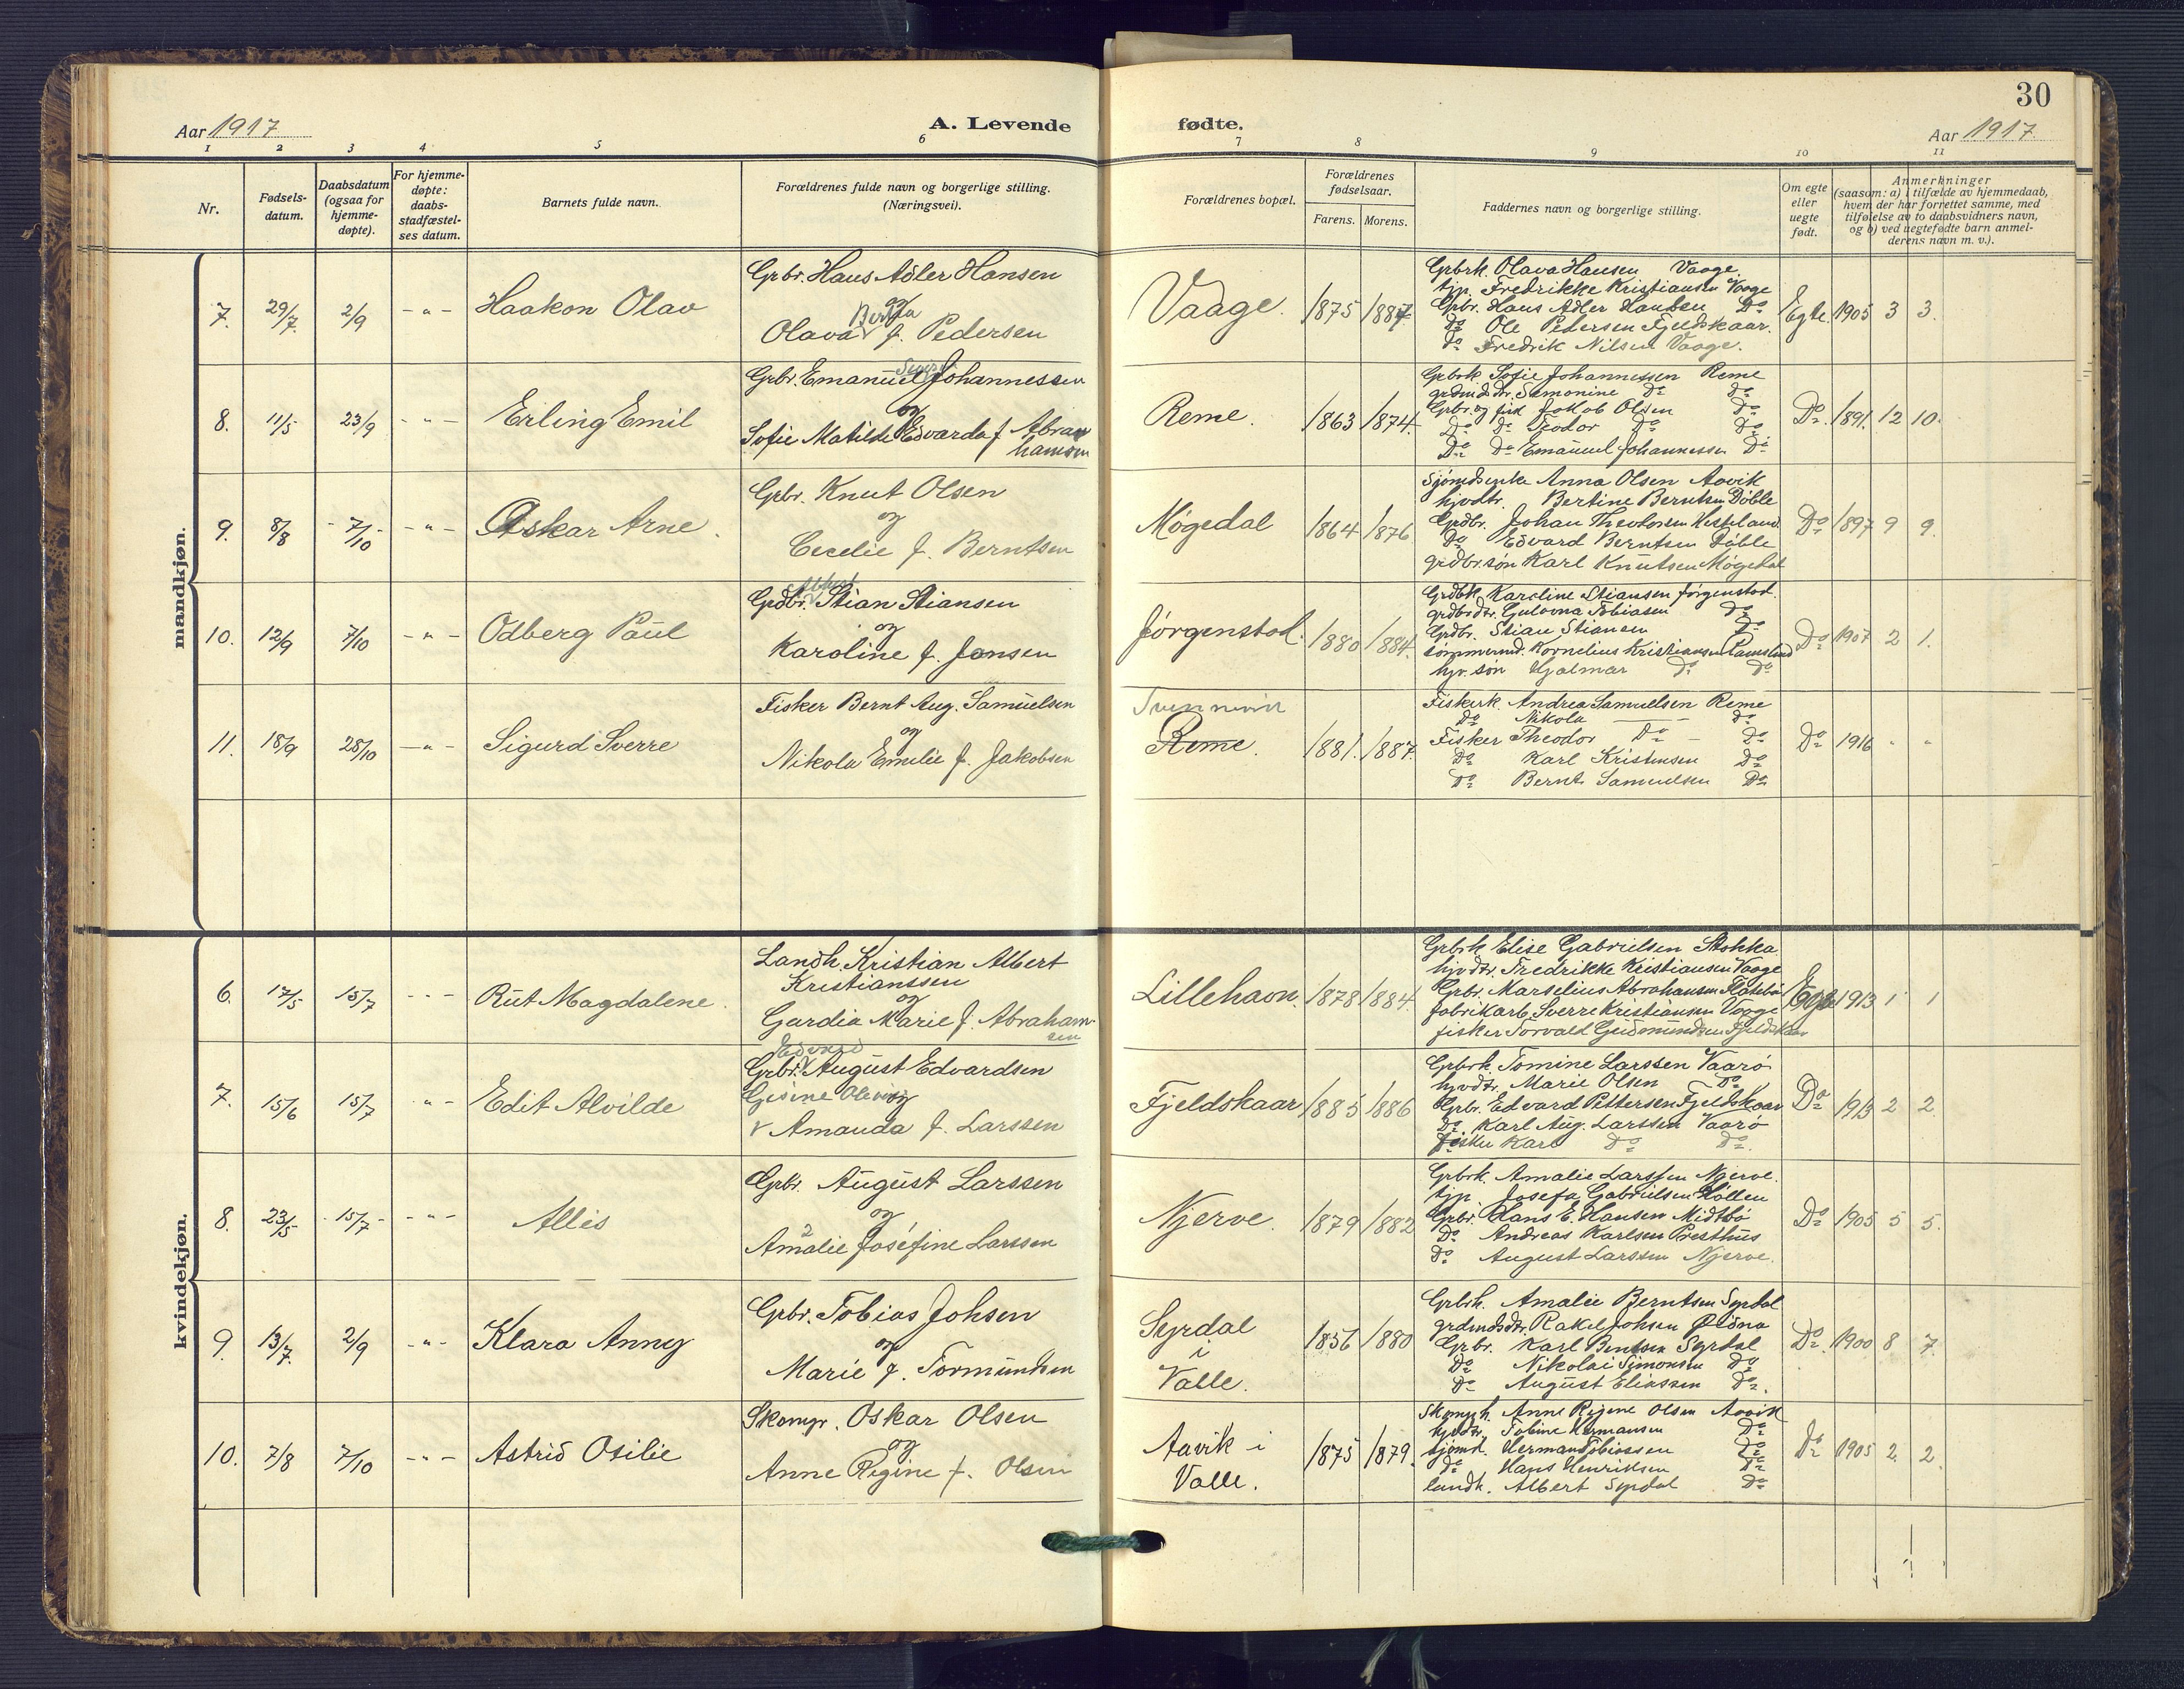 30
Aar 1917
A. Levende
fødte.
Aar 1917.
1 2 3 4 5 6 7 8 9 10 11
Nr.
Fødsels-
datum.
Daabsdatum
(ogsaa for
hjemme-
døpte).
For hjemme-
døpte:
daabs-
stadfæstel-
ses datum.
Barnets fulde navn.
Forældrenes fulde navn og borgerlige stilling.
(Næringsvei).
Forældrenes bopæl.
Forældrenes
fødselsaar.
Farens. Morens.
Faddernes navn og borgerlige stilling.
Om egte
eller
uegte
født.
Anmerkninger
(saasom: a) i tilfælde av hjemmedaab,
hvem der har forrettet samme, med
tilføielse av to daabsvidners navn,
og b) ved uegtefødte barn anmel-
derens navn m. v.).
mandkjøn.
7. 29/7. 2/9 - " - Haakon Olav
Grbr. Hans Adler Hansen
og
Berta
Olava v f. Pedersen
Vaage. 1875 1887
Grbrk. Olava Hansen Vaage.
tjp. Fredrikke Kristiansen Vaage
Grbr. Hans Adler Hansen Do
Do Ole Pedersen Fjeldskaar.
Do Fredrik Nilsen Vaage.
Egte. 1905 3 3.
8. 11/5 23/9 - " - Erling Emil
Grbr. Emanuel Johannessen
og
Sofie Matilde Edvarda f. Abra
hamsen
Reme. 1863 1874.
Grbrk. Sofie Johannessen Reme
grdmdsdtr. Samonine Do Do
Grbr. og fisk Jakob Olsen Do
Do Do Teodor Do Do
Do Do Emanuel Johannessen Do
Do. 1891. 12 10.
9. 8/8 7/10 - " - Oskar Arne.
Grbr. Knut Olsen
og
Cecelie f. Berntsen
Møgedal 1864 1876
Sjømdsenke Anna Olsen Aavik
hjvdtr. Bertine Berntsen Døble
Grdbr. Johan Theodorsen Hesteland.
Do Edvard Berntsen Døble
grdbr.søn Karl Knutsen Møgedal
Do 1897 9 9.
10. 12/9 7/10 - " - Odberg Paul
Albert
Grdbr. v Stian Stiansen
og
Karoline f. Jansen
Jørgenstad. 1880 1884.
Grdbk. Karoline Stiansen Jørgenstad.
grdbrdtr. Gulovna Tobiasen Do
Grdbr. Stian Stiansen Do
tømmermd. Kornelius Kristiansen
hjv. søn Hjalmar Do Do
Do 1907 2 1.
11. 18/9 28/10 - " - Sigurd Sverre
Fisker Bernt Aug. Samuelsen
og
Nikola Emilie f. Jakobsen
Reme. 1881. 1887.
Fiskerk. Andrea Samuelsen Reme
Do Nikola Do
Fisker Theodor Do Do
Do Karl Kristensen Do
Do Bernt Samuelsen Do
Do 1916 " "
kvindekjøn.
6. 17/5 15/7 - " - Rut Magdalene.
Landh. Kristian Albert
Kristianssen
og
Gardia Marie f. Abraham
sen
Lillehavn. 1878 1884.
Grbrk Elise Gabrielsen Stokka
hjvdtr. Fredrikke Kristiansen Vaage
Grbr. Marselius Abrahamsen
fabrikarb. Sverre Kristiansen Vaage
fisker Torvald Gudmundsen Fjeldskaar
Egte 1913 1 1
7. 15/6 15/7 " - Edit Alvilde
Edvard
Grbr. v August Edvardsen
Gisine og
v Amanda f. Larssen
Fjeldskaar 1885 1886
Grbrk. Tomine Larssen Vaarø
hjvdtr. Marie Olsen Do
Grbr. Edvard Pettersen Fjeldskaar
Do Karl Aug. Larssen Vaarø
Fisker Karl Do Do.
Do 1913 2 2.
8. 23/5 15/7 - " - Allis
Grbr. August Larssen
og
Amalie Josefine Larssen
Njerve. 1879 1882
Grbrk. Amalie Larssen Njerve.
tjp Josefa Gabrielsen Høllen
Grbr. Hans E. Hansen Midtbø
Do Andreas Karlsen Presthus
Do August Larssen Njerve.
Do 1905 5 5.
9. 13/7. 2/9 - " - Klara Anny
Grbr. Tobias Johsen
og
Marie f. Tormundsen
Syrdal
i
Valle. 1856 1880
Grbrk. Amalie Berntsen Syrdal
grdmdsdtr. Rakel Johsen Ødna
Grbr. Karl Bentsen Syrdal
Do Nikolai Simonsen Do
Do August Eliassen Do.
Do. 1900 8 7.
10. 7/8 7/10 - " - Astrid Otilie
Skomgr. Oskar Olsen
og
Anne Regine f. Olsen
Aavik i
Valle. 1875 1879.
Skomgrk. Anne Regine Olsen Aavik
hjvdtr. Tobine Hermansen Do
sjømd. Herman Tobiassen Do
Do Hans Henriksen Do
landh. Albert Syrdal Do
Do 1905 2. 2.